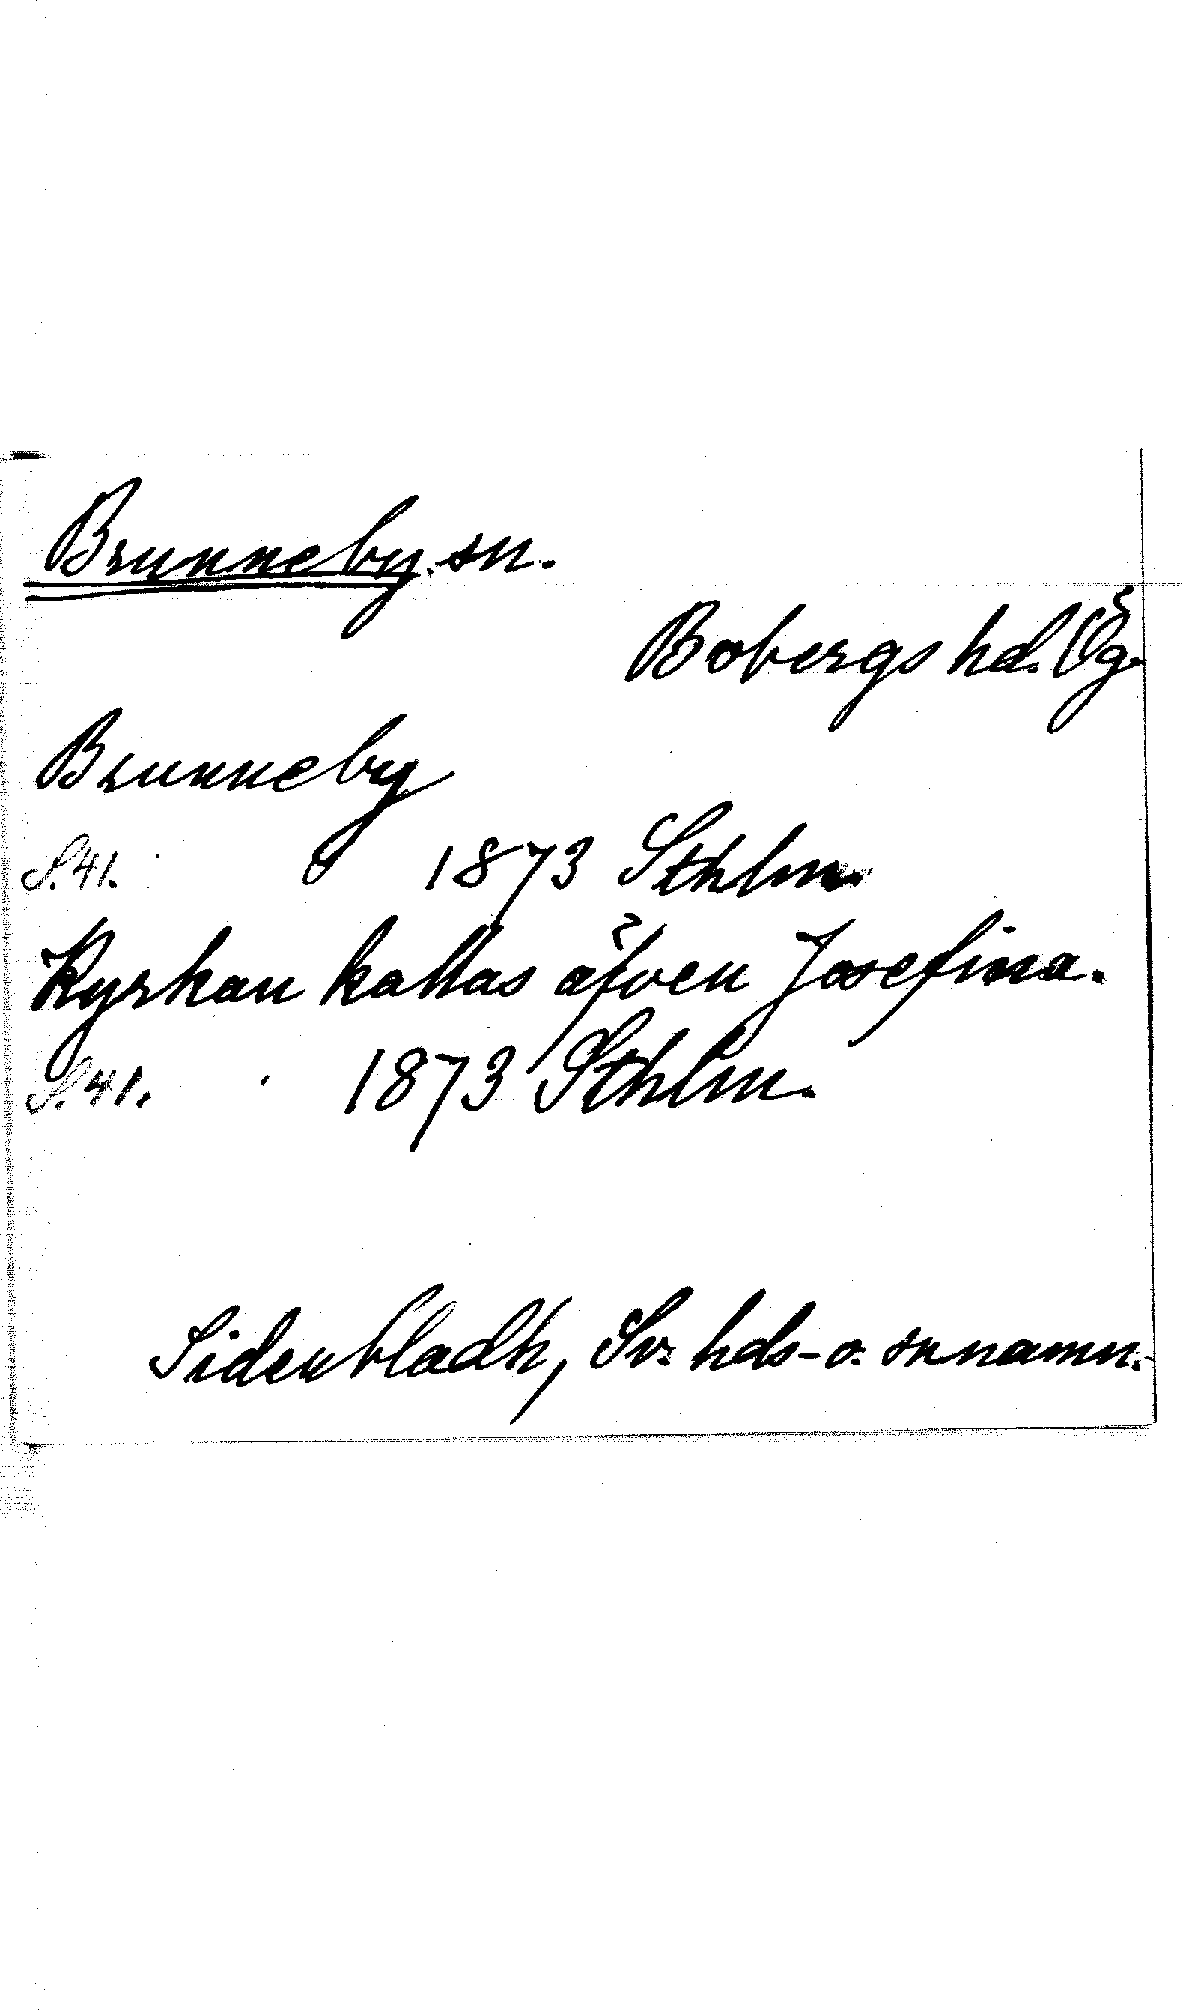 Brunneby sn.
Bobergs hd. Ög.
Brunneby
S. 41. 1873 Sthlm.
Kyrkan kallas äfven Josefina.
S. 41. 1873 Sthlm.
Sidenbladh, Sv. hds- o. snnamn.